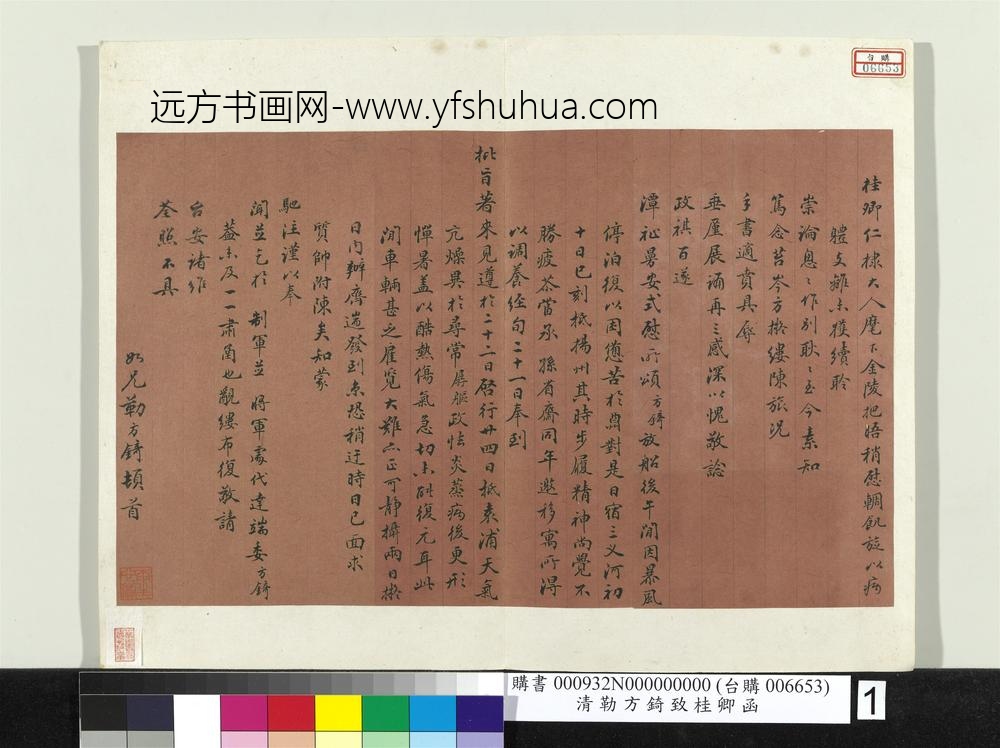 台購
06653
远方书画网-www.yfshuhua.com
桂卿仁棣大人麾下金陵把晤稍慰輖飢旋以病
軆支離未獲續聆
崇論悤悤作別耿耿至今素知
篤念苔岑方擬縷陳旅況
手書適賁具辱
垂廑展誦再三感深以愧敬諗
政祺百遂
潭祉曼安式慰所頌方錡放船後午間因暴風
停泊復以困憊苦於應對是日宿三义河初
十日巳刻抵揚州其時步履精神尚覺不
勝疲苶當承孫省齋同年邀移寓所得
以調養經旬二十一日奉到
批旨著來見遵於二十二日啓行廿四日抵袁浦天氣
亢燥異於尋常孱軀政怯炎蒸病後更形
憚暑蓋以酷熱傷氣急切未能復元耳此
間車輛甚乏雇覓大難亦正可靜攝兩日擬
日內辦齊遄發到京恐稍迂時日已面求
質帥附陳矣知蒙
馳注謹以奉
聞並乞於制軍並將軍處代達端委方錡
蓋未及一一肅函也覶縷布復敬請
台安諸維
荃照不具
如兄勒方錡頓首
購書 000932N000000000 (台購 006653)
清勒方錡致桂卿函
1